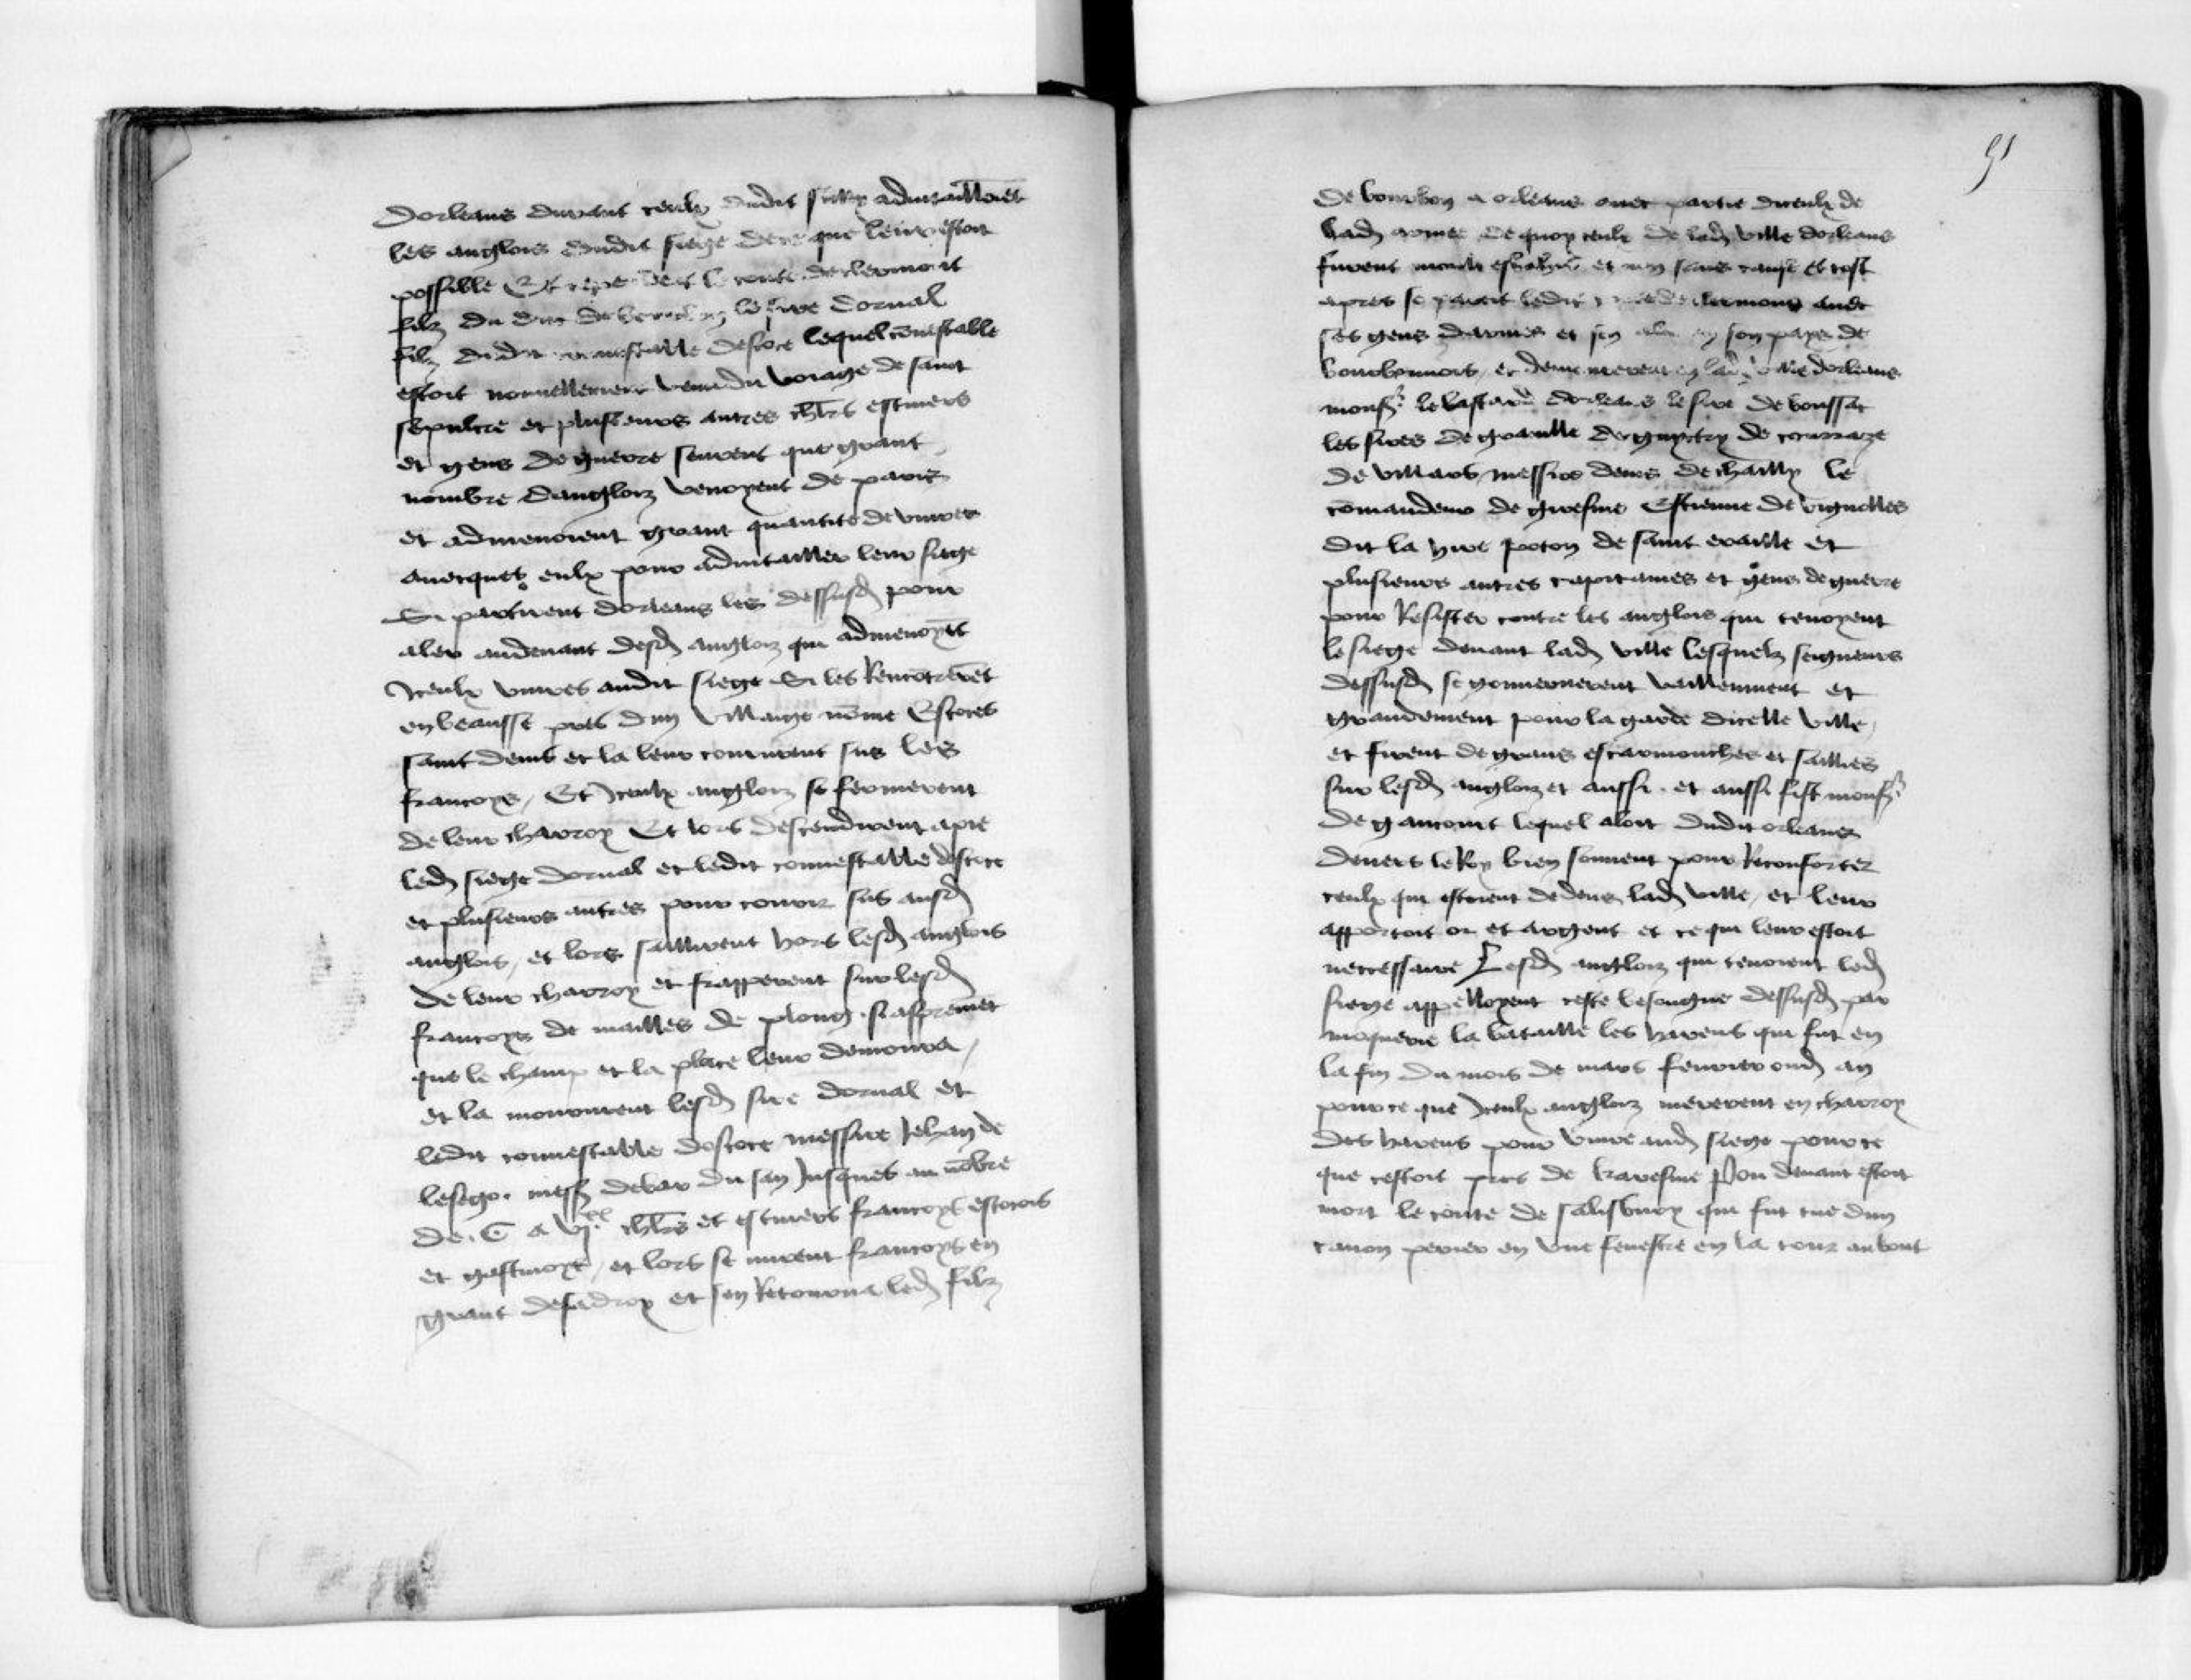 dorleans durant ceulx dudit sully aduitailleret
les anglois dudit siege de ce que leur estoit
possible Et cependent le conte de clermont
filz du duc de bourbon le sire dorual
filz dudit connestable descoce lequel cōnestable
estoit nouuellement venu du voiage de saint
sepulcre et plusieurs autres chlrs escuiers
et gens de guerre seurent que grant
nombre dangloiz venoyent de paris
et admenoient grant quantite de viures
auecques eulx pour aduitailler leur siege
Si partirent dorleans les dessusd pour
aler audeuant desd angloiz qui admenoyēt
Iceulx viures audit siege Si les Rencōtrerēt
en beausse pres dun villaige nōme Estores
saint denis et la leur coururent sus les
francoys / Et Iceulx angloiz se fermerent
de leur charroy Et lors descendirent apie
led sire dorual et ledit connestable descoce
et plusieurs autres pour courir sus ausd
anglois / et lors saillirent hors lesd anglois
de leur charroy et frapperent sur lesd
francoys de mailles de plong si asprement
que le champ et la place leur demoura /
et la moururent lesd sire dorual et
ledit connestable descoce messire Jehan de
lesgo . mess debar du san Jusques au nōbre
de . C a vj.xx chlrs et escuiers francoys escocois
et gascoygs / et lors se mirent francoys en
grant desadroy et sen Retourna led filz
91
de bourbon a orleans auec partie diceulx de
lad armee de quoy ceulx de lad ville dorleans
furent moult esbahiz et non sans cause et tost
apres se partit ledit conte de clermont auec
ses gens darmes et sen ala en son pays de
bourbonnois / et demeurerent en lad ville dorleans
monsr le bastard dorleans le sire de boussac
les sires de grauille de guytry de courraze
de villars / messire denis de chailly le
cōmandeur de giresme Estienne de vignolles
dit la hire poton de saint eraille et
plusieurs autres capitaines et gens de guerre
pour Resister contre les anglois qui tenoyent
le siege deuant lad ville lesquelz seigneurs
dessusd se gouuernerent vaillemment et
grandement pour la garde dicelle ville /
et firent de grans escarmouches et saillies
sur lesd angloiz et aussi . et aussi fist monsr
de gaucourt lequel aloit dudit orleans
deuers le Roy bien souuent pour Reconforter
ceulx qui estoient dedens lad ville / et leur
apportoit or et argent et ce qui leur estoit
neccessaire Lesd angloiz qui tenoient led
siege appelloyent ceste besongne dessusd par
moquerie la bataille les harens qui fut en
la fin du mois de mars feurier oud an
pource que Iceulx angloiz menerent en charroy
des harens pour viure aud siege pource
que cestoit pres de karesme Pou deuant estoit
mort le conte de salisbury qui fut tue dun
canon perier en vne fenestre en la tour au bout